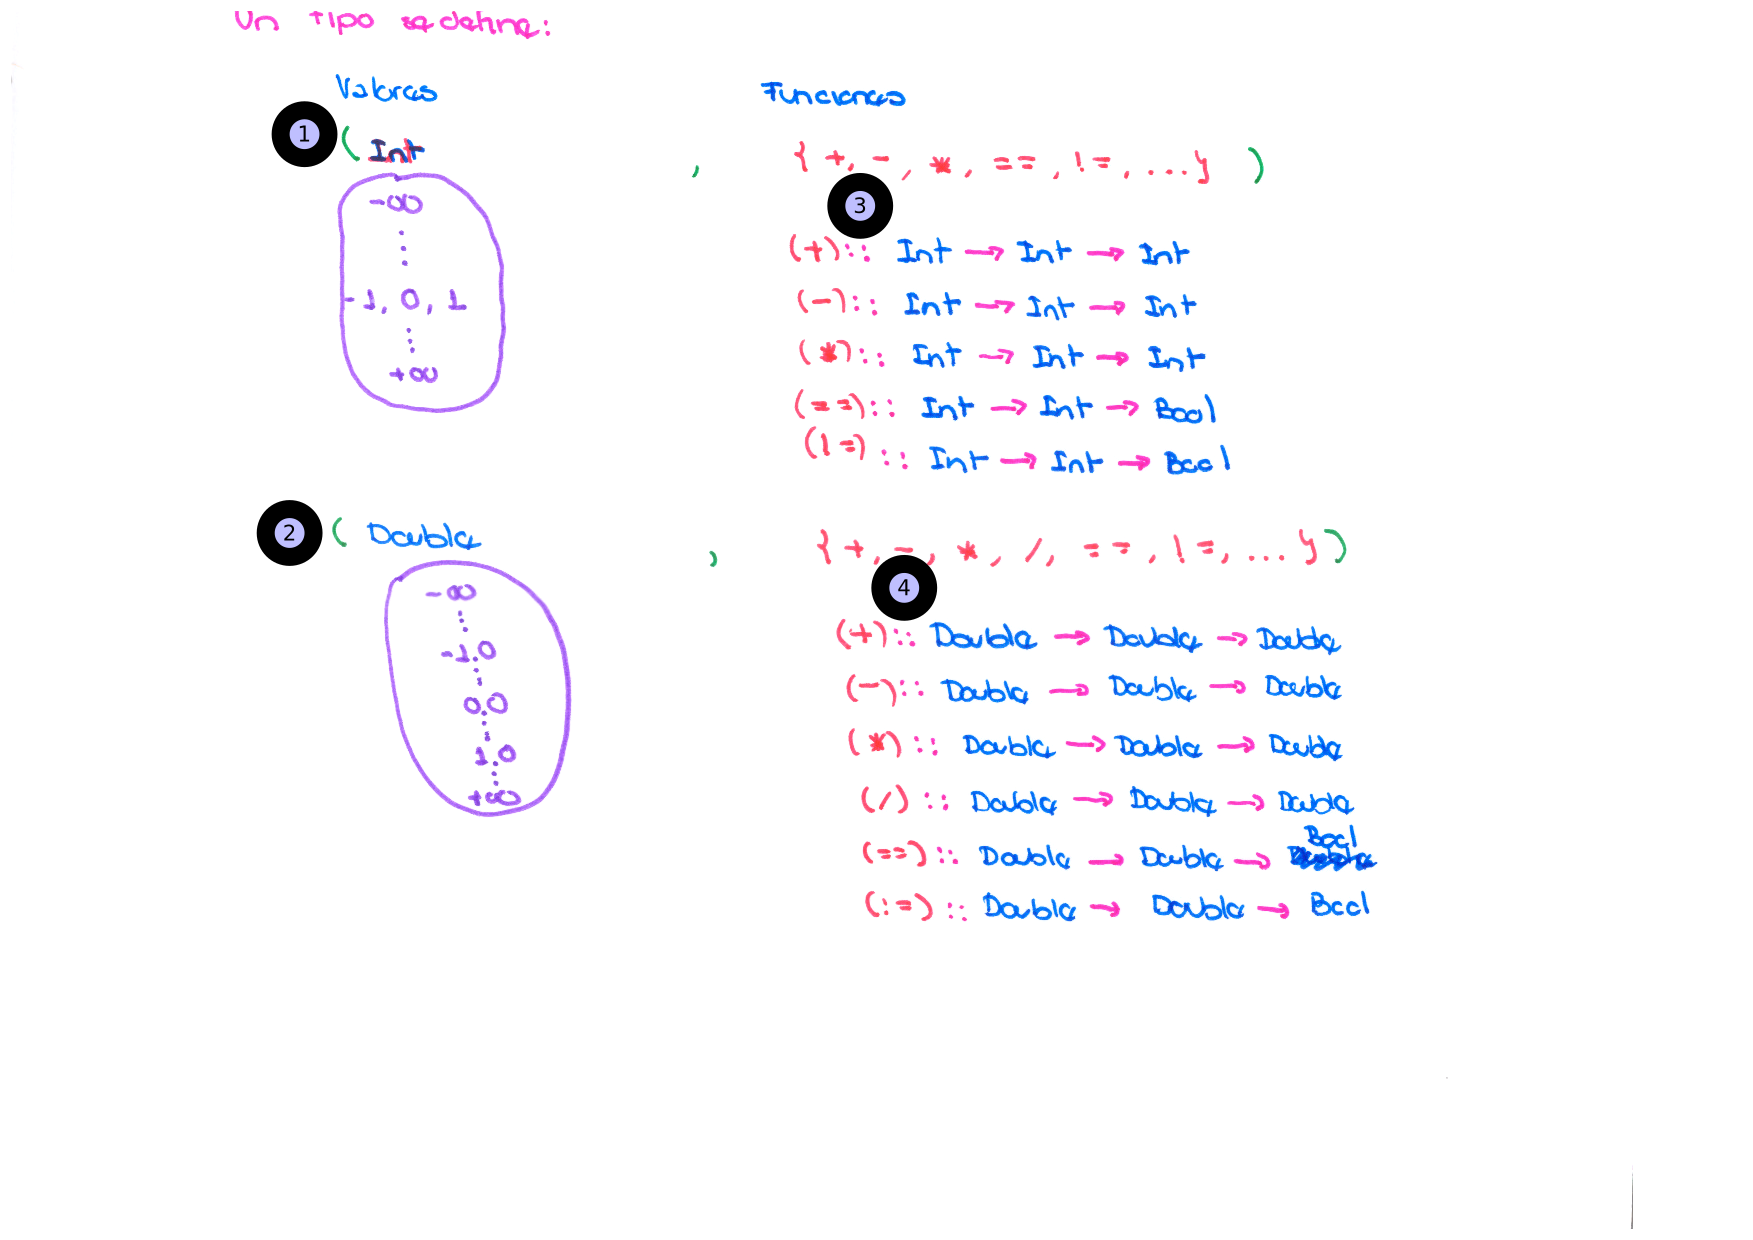 Un tipo se define:
Valores Funciones
1 ( Int , { +, -, *, ==, !=, ...} )
-∞
3
(+):: Int → Int → Int
-1, 0, 1
(-):: Int → Int → Int
(*):: Int → Int → Int
+∞
(==):: Int → Int → Bool
(!=) :: Int → Int → Bool
2 ( Double , { +, -, *, /, ==, !=, ... } )
-∞
4
(+):: Double → Double → Double
-1.0
(-):: Double → Double → Double
0.0
(*) :: Double → Double → Double
1.0
+∞
(/) :: Double → Double → Double
(==) :: Double → Double → Bool
(!=) :: Double → Double → Bool